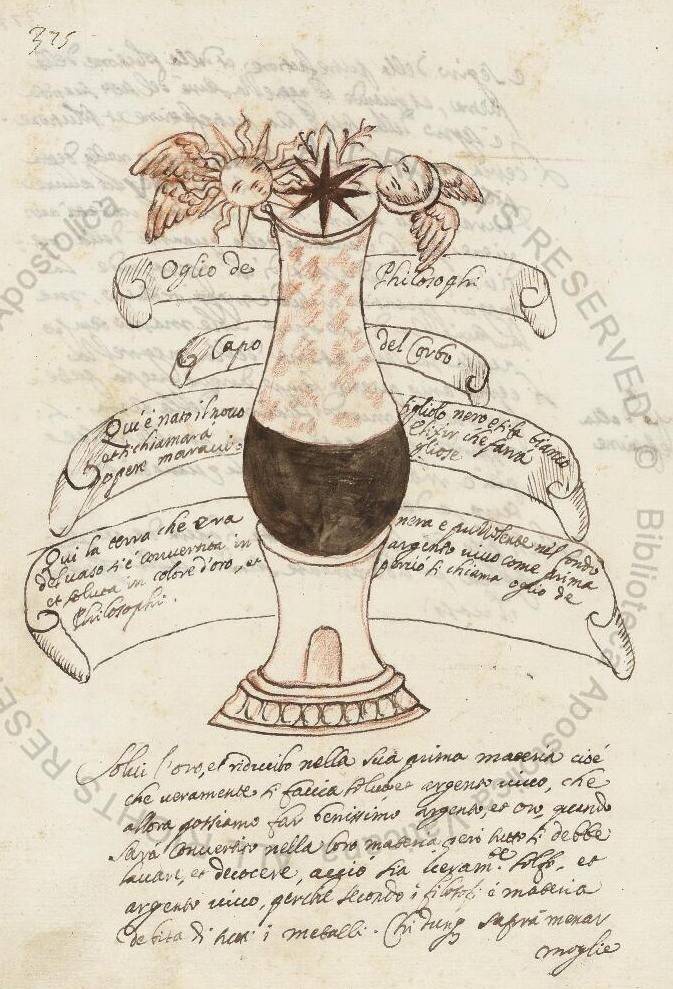 325
Oglio de Philosophi
Capo del Corbo
Qui è nato il novo figliolo nero et fa bianco
et si chiamarà Elixir che farrà
opere maravigliose.
Qui la terra che era nera e nel fondo
del vaso si è convertita in argento vivo come prima
et soluta in colore d'oro, et perciò si chiama oglio de
Philosophi.
Solvi l'oro, et riducilo nella sua prima materia cioè
che veramente si faccia solfo, et argento vivo, che
allora possiamo far benissimo argento, et oro, quando
sarà convertito nella loro materia però tutto si debbe
lavare, et decocere, acciò sia veram.te solfo, et
argento vivo, perche secondo i filosofi è materia
di tutti i metalli. Chi dunq saprà menar
moglie
RIGHTS RESERVED © Biblioteca Apostolica Vaticana